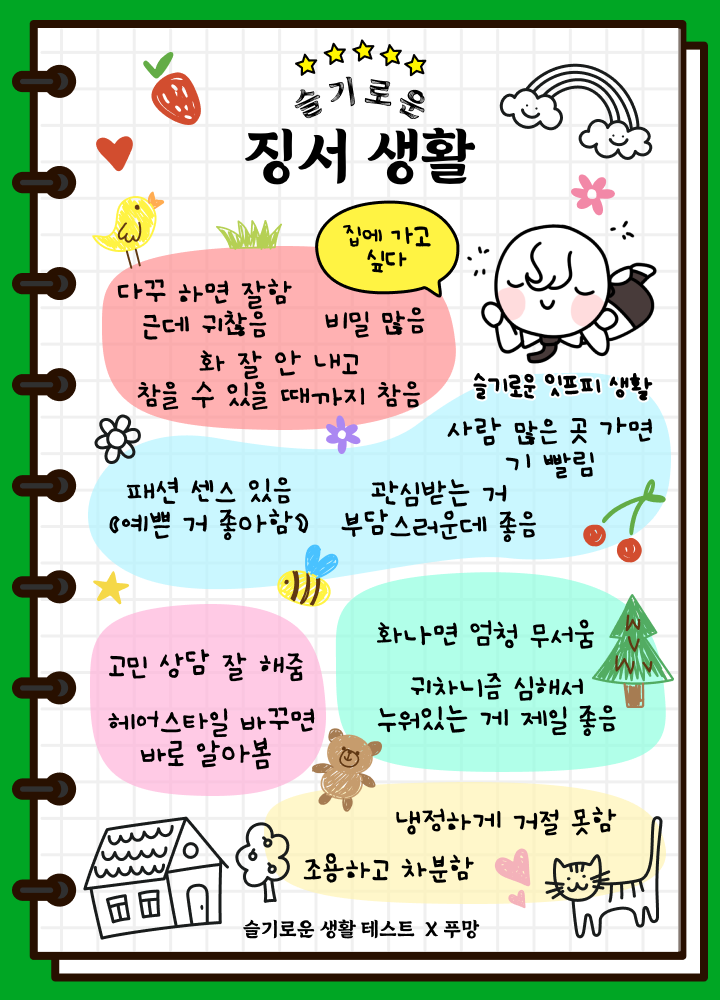 슬기로운
징서 생활
집에 가고
싶다
다꾸 하면 잘함
근데 귀찮음
비밀 많음
화 잘 안 내고
참을 수 있을 때까지 참음
슬기로운 잇프피 생활
사람 많은 곳 가면
기 빨림
패션 센스 있음
(예쁜 거 좋아함)
관심받는 거
부담스러운데 좋음
화나면 엄청 무서움
고민 상담 잘 해줌
귀차니즘 심해서
누워있는 게 제일 좋음
헤어스타일 바꾸면
바로 알아봄
냉정하게 거절 못함
조용하고 차분함
슬기로운 생활 테스트 X 푸망